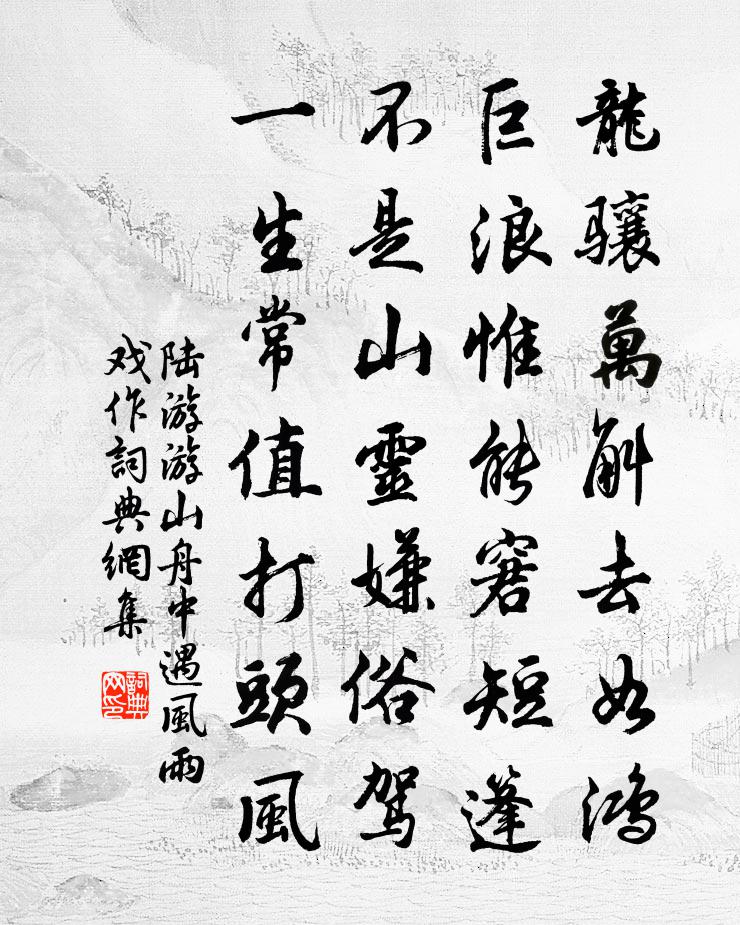 龍骧萬斛去如鴻
巨浪惟能窘短篷
不是山靈嫌俗駕
一生常值打頭風
陆游游山舟中遇風雨
戏作詞典網集
詞典
网印